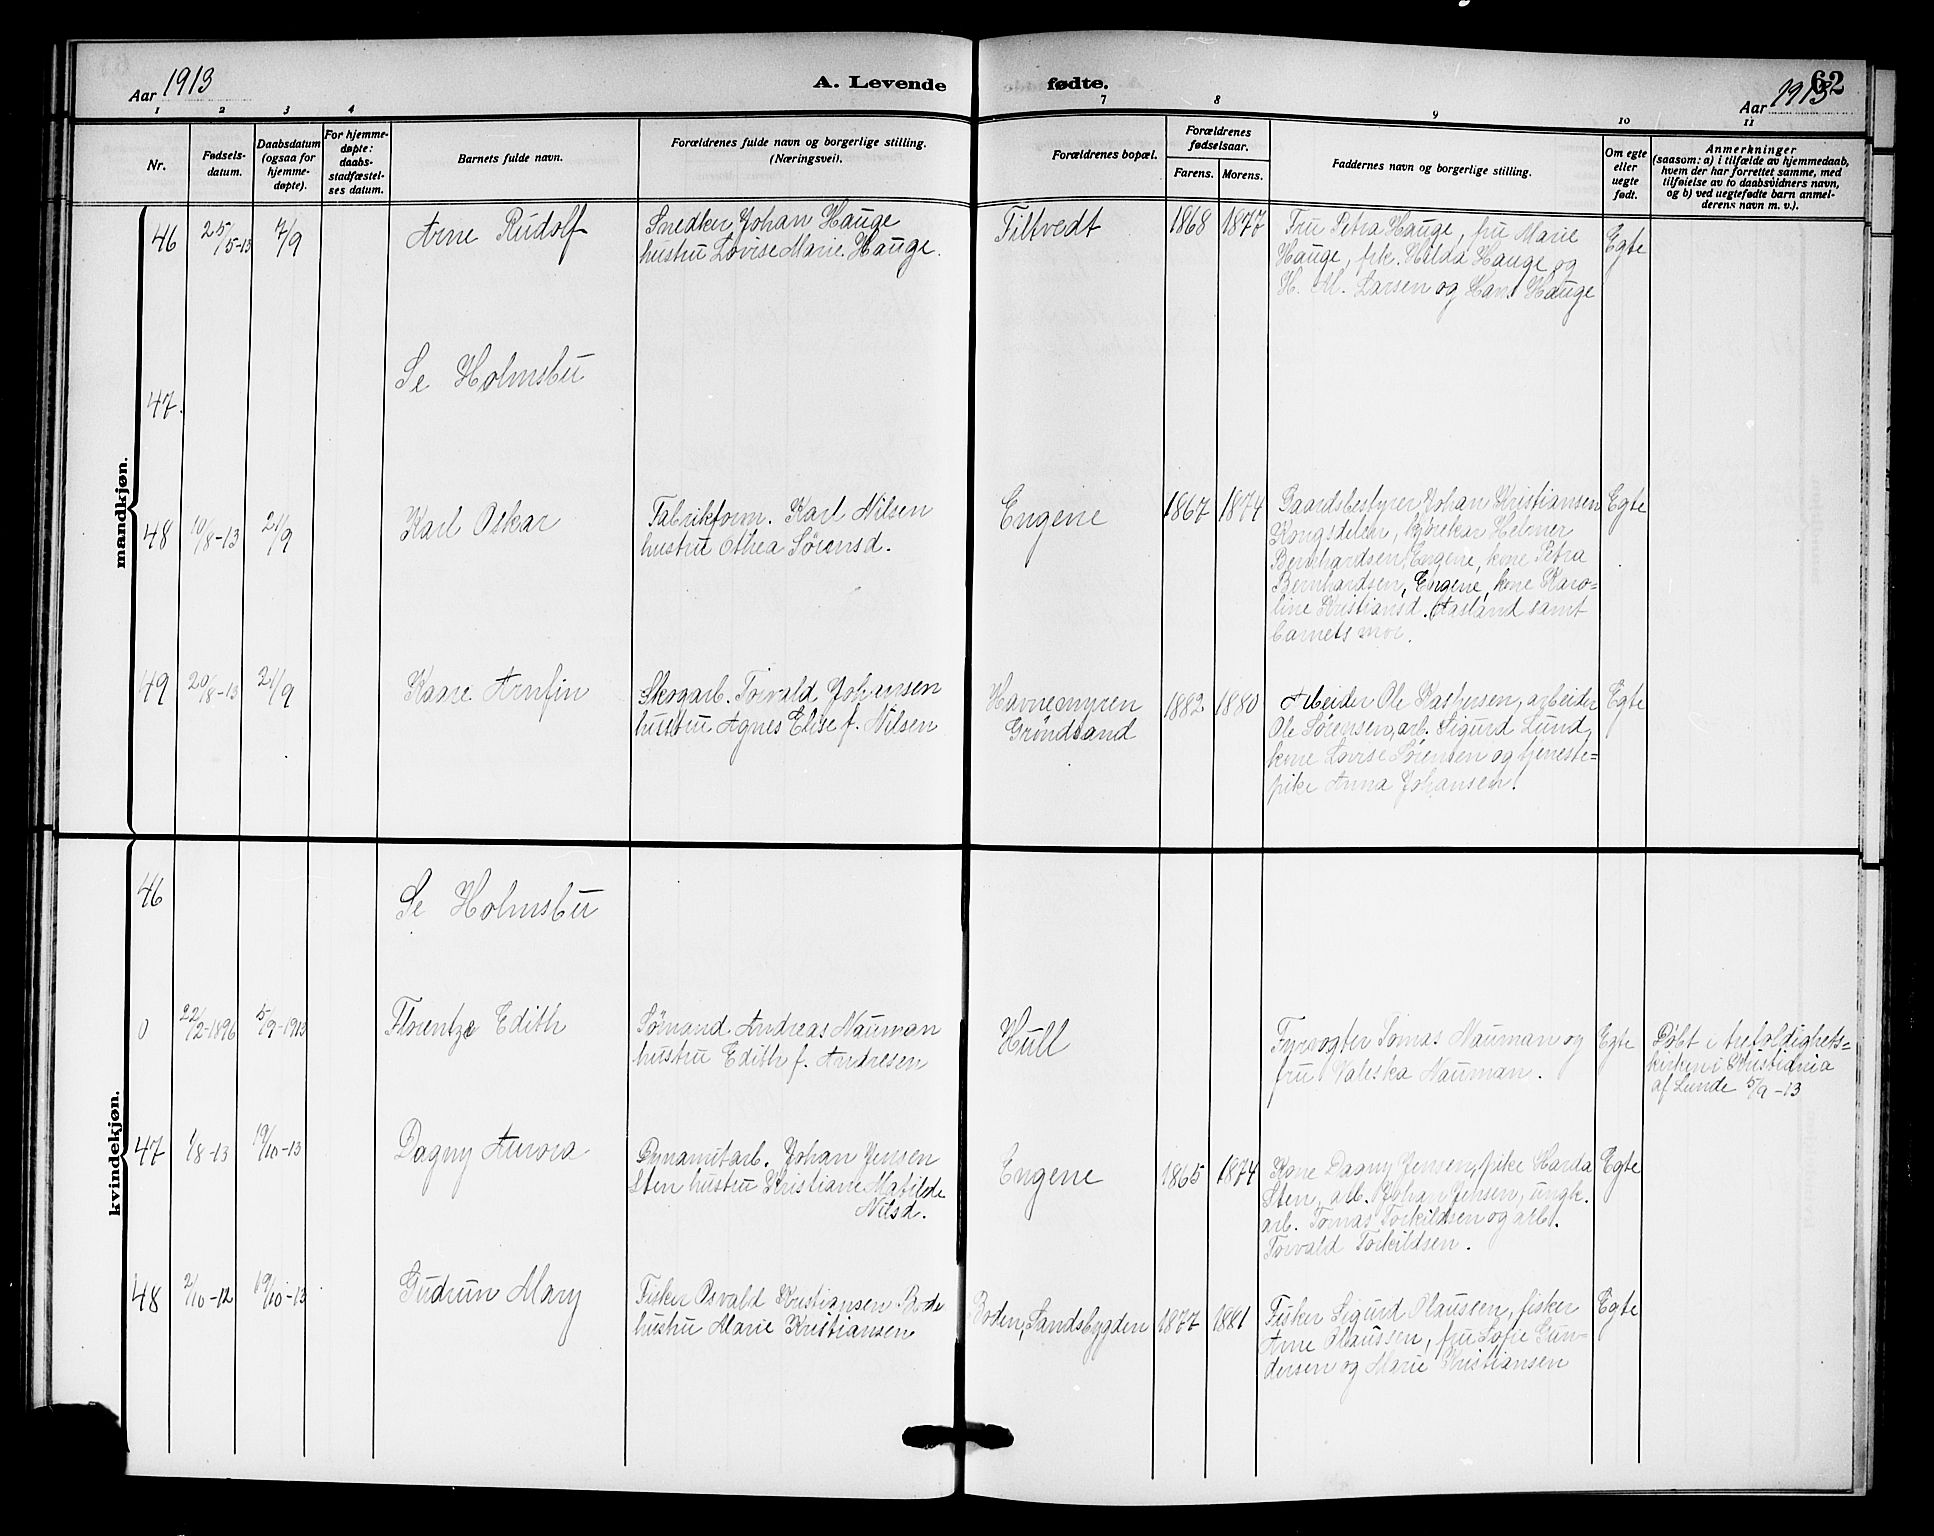 Aar 1913
A. Levende
fødte.
Aar 1913
62
1 2 3 4 7 8 9 10 11
Nr.
Fødsels-
datum.
Daabsdatum
(ogsaa for
hjemme-
døpte).
For hjemme-
døpte:
daabs-
stadfæstel-
ses datum.
Barnets fulde navn.
Forældrenes fulde navn og borgerlige stilling.
(Næringsvei).
Forældrenes bopæl.
Forældrenes
fødselsaar.
Farens. Morens.
Faddernes navn og borgerlige stilling.
Om egte
eller
uegte
født.
Anmerkninger
(saasom: a) i tilfælde av hjemmedaab,
hvem der har forrettet samme, med
tilføielse av to daabsvidners navn,
og b) ved uegtefødte barn anmel-
derens navn m. v.).
mandkjøn.
46
25/5-13
7/9
Arne Rudolf
Snedker Johan Hauge
hustru Lovise Marie Hauge.
Tiltvedt
1868
1877
Fru Petra Hauge, fru Marie
Hauge, frk. Hilda Hauge og
H. M. Larsen og Hans Hauge
Egte
47.
Se Holmsbu
48
10/8-13
21/9
Karl Oskar
Fabrikform. Karl Nilsen
hustru Othea Sörensd.
Engene
1867
1874
Gaardsbestyrer Johan Kristiansen
Kongsdelen, kjørekar Helmer
Bernhardsen, Engene, kone Petra
Bernhardsen, Engene, kone Karo-
line Kristiansd. Aasland samt
barnets mor.
Egte
49
20/8-13
21/9
Kaare Arnfin
Skogarb. Torvald Johansen
hustru Agnes Elise f. Nilsen
Havnemyren
Gröndsand
1882
1880
Arbeider Ole Kaspersen, arbeider
Ole Sörensen, arb. Sigurd Lund,
kone Lovise Sörensen og tjeneste-
pike Anna Johansen.
Egte
kvindekjøn.
46
Se Holmsbu
0
22/2-1896
5/9-1913
Florentze Edith
Sömand Andreas Nauman
hustru Edith f. Andresen
Hull
Fyrvogter Tomas Nauman og
fru Valeska Nauman.
Egte
Döbt i trefoldighets-
kirken i Kristiania
af Lunde 5/9-13
47
1/8-13
19/10-13
Dagny Aurora
Dynamitarb. Johan Jensen
Sten hustru Kristiane Matilde
Nilsd.
Engene
1865
1874
Kone Dagny Jensen, pike Harda
Sten, arb. Johan Jensen, ungk.
arb. Tomas Torkildsen og arb.
Torvald Torkildsen.
Egte
48
2/10-12
19/10-13
Gudrun Mary
Fisker Osvald Kristiansen Bode
hustru Marie Kristiansen
Boden, Sandsbygden
1877
1881
Fisker Sigurd Olaussen, fisker
Arne Olaussen, fru Sofie Gun-
dersen og Marie Kristiansen
Egte